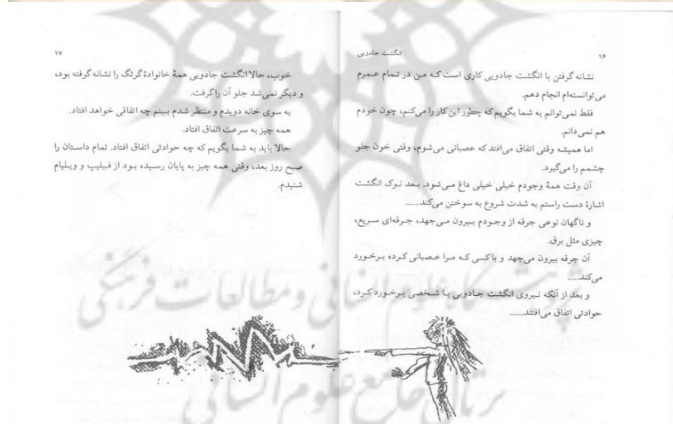 ۱۶
انگشت جادویی
نشانه گرفتن با انگشت جادویی کاری است که من در تمام عمرم
می‌توانسته‌ام انجام دهم.
فقط نمی‌توانم به شما بگویم که چطور این کار را می‌کنم، چون خودم
هم نمی‌دانم.
اما همیشه وقتی اتفاق می‌افتد که عصبانی می‌شوم، وقتی خون جلو
چشمم را می‌گیرد.
آن وقت همهٔ وجودم خیلی خیلی داغ می‌شود. بعد نوک انگشت
اشارهٔ دست راستم به شدت شروع به سوختن می‌کند......
و ناگهان نوعی جرقه از وجودم بیرون می‌جهد، جرقه‌ای سریع،
چیزی مثل برق.
آن جرقه بیرون می‌جهد و باکسی که مرا عصبانی کرده برخورد
می‌کند.....
و بعد از آنکه نیروی انگشت جادویی با شخصی برخورد کرد،
حوادثی اتفاق می‌افتند......
۱۷
خوب، حالا انگشت جادویی همهٔ خانوادهٔ گرگگ را نشانه گرفته بود،
و دیگر نمی‌شد جلو آن را گرفت.
به سوی خانه دویدم و منتظر شدم ببینم چه اتفاقی خواهد افتاد.
همه چیز به سرعت اتفاق افتاد.
حالا باید به شما بگویم که چه حوادثی اتفاق افتاد. تمام داستان را
صبح روز بعد، وقتی همه چیز به پایان رسیده بود از فیلیپ و ویلیام
شنیدم.
پژوهشگاه علوم انسانی و مطالعات فرهنگی
پرتال جامع علوم انسانی